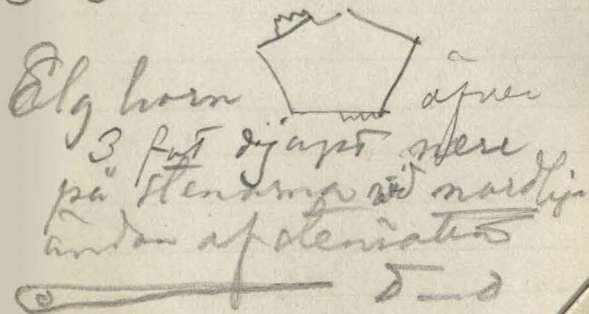 Elg horn öfver
3 fot djupt nere
på stenarna vid nordliga
ändan af stensätt